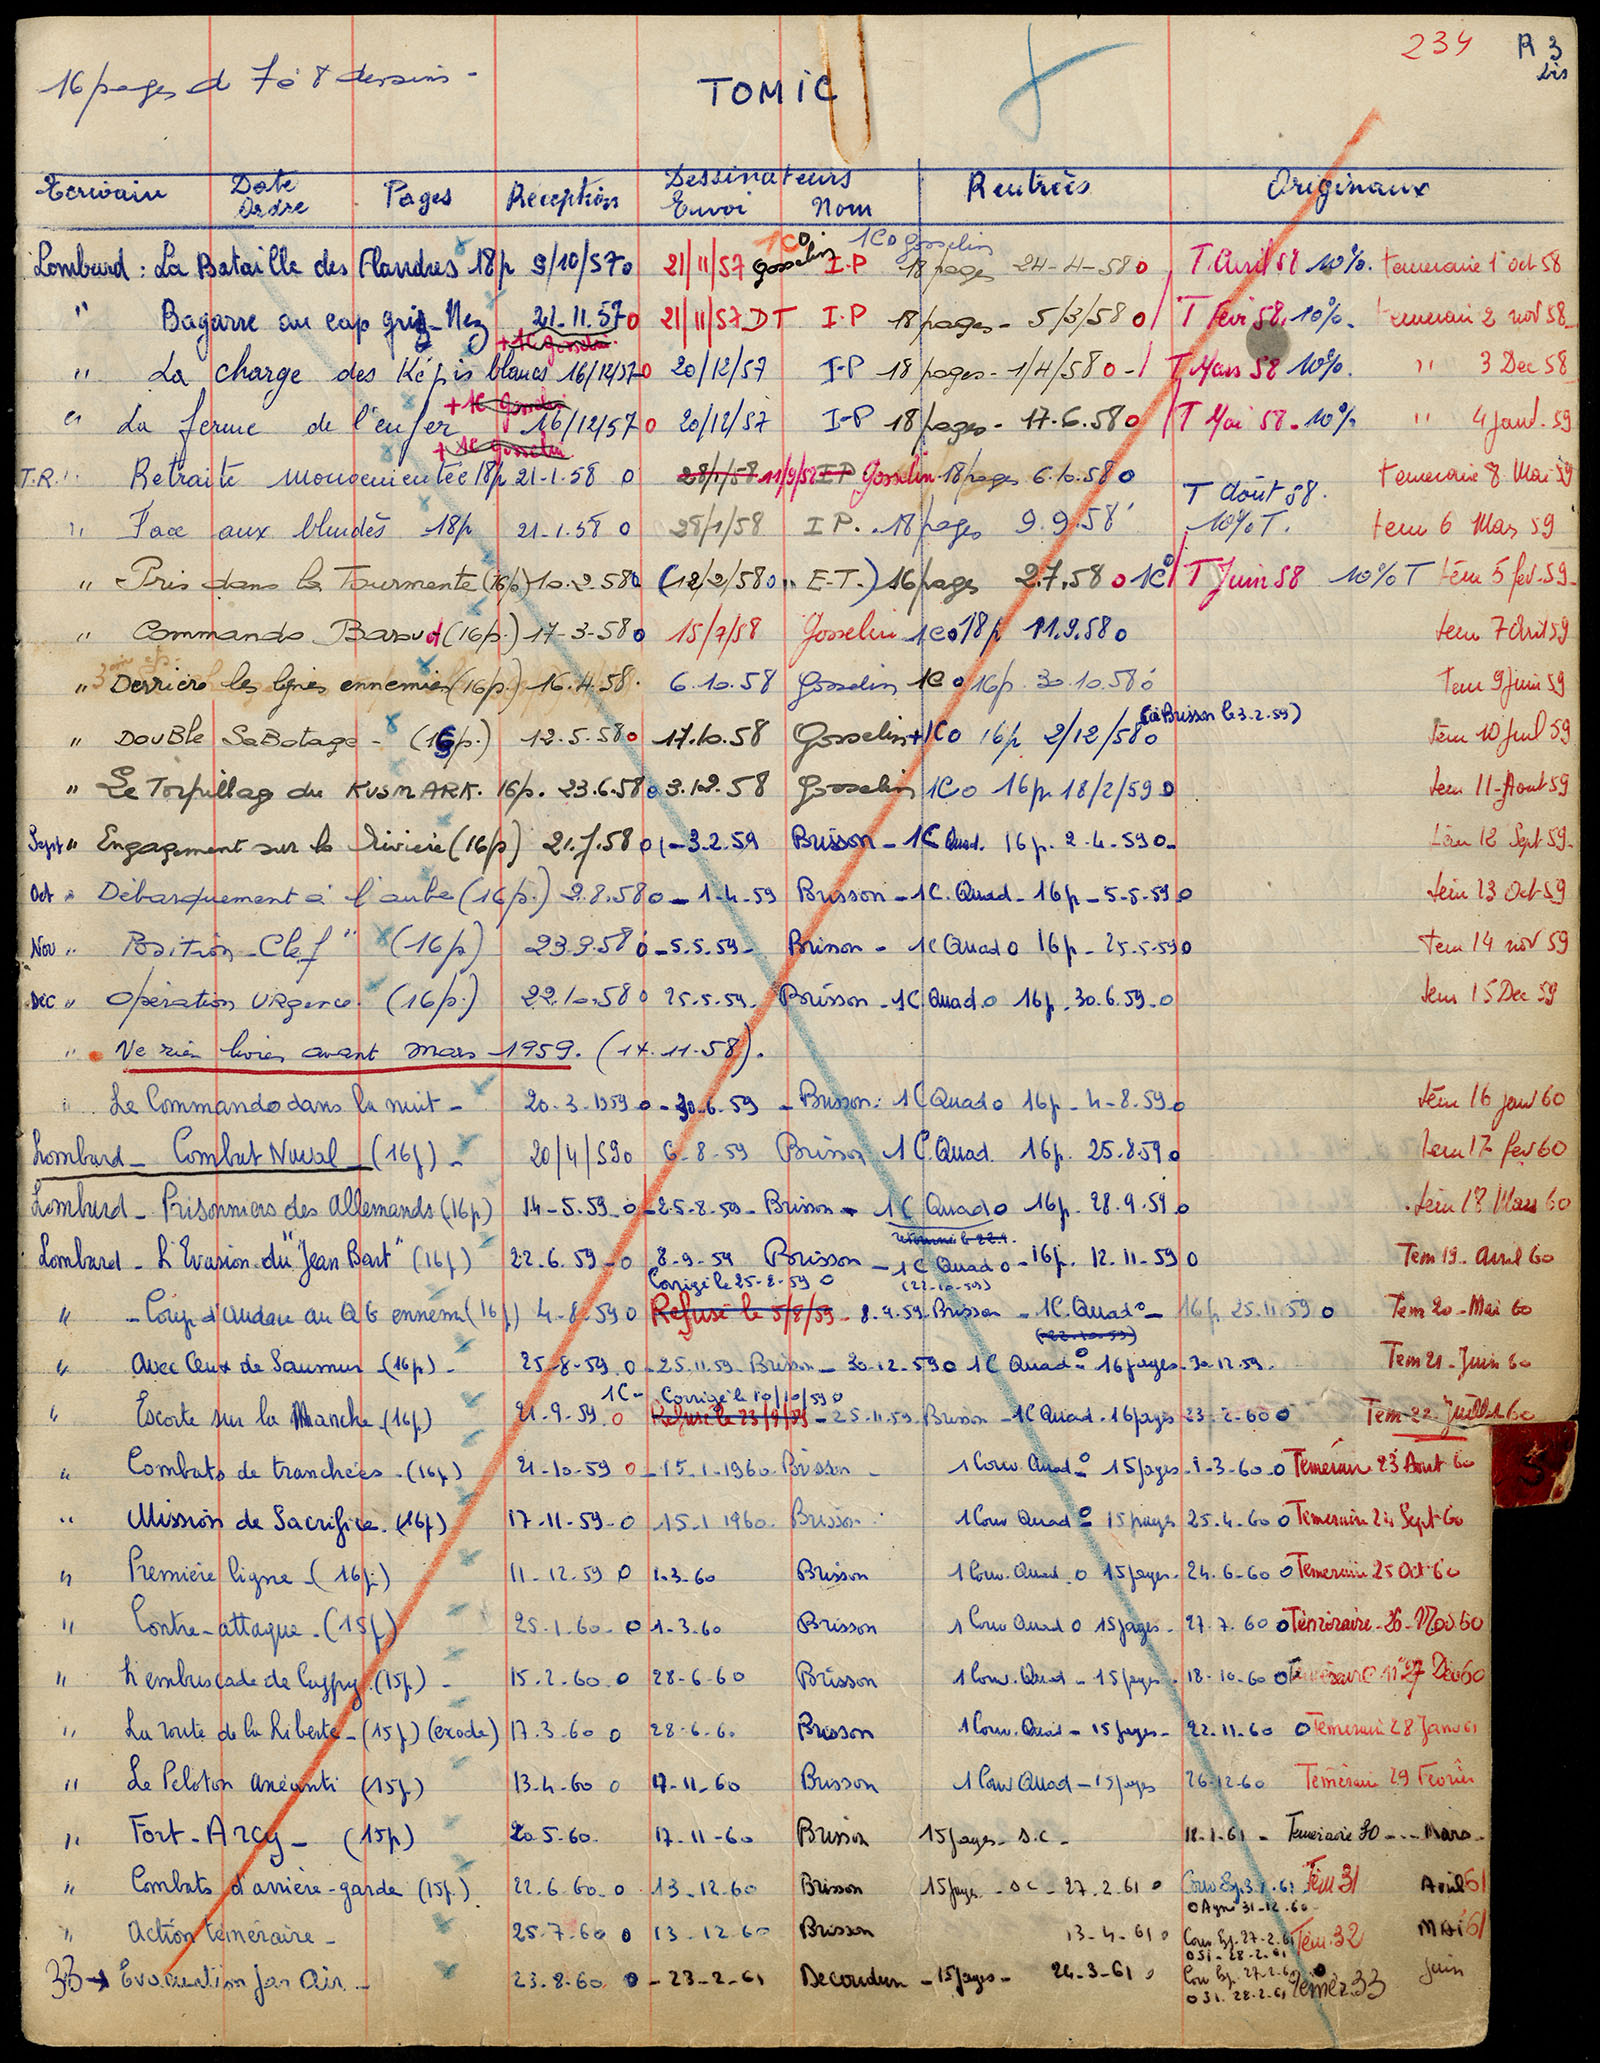 234 R 3
bis
16 pages d 7 à 8 dessins -
TOMIC
Ecrivain Date Ordre Pages Reception Dessinateurs Envoi Nom Rentrées Originaux
1C0 1C0 Gosselin
Lombard : La Bataille des Flandres 18p 9/10/57 o 21/11/57 Gosselin I.P 18 pages 24-4-58 o T. Avril 58 10%. temeraire 1 oct 58
" Bagarre au cap gris-Nez 21-11.57 o 21/11/57 DT I.P 18 pages - 5/3/58 o T Fevr 58. 10%. temerair 2 nov 58
+ 1C Gosselin
" La charge des Képis blancs 16/12/57 o 20/12/57 I-P 18 pages - 1/4/58 o - T Mars 58 10%. " 3 Dec 58
+ 1C Gosselin
" La ferme de l'enfer 16/12/57 o 20/12/57 I-P 18 pages - 17.6.58 o T Mai 58 - 10% " 4 Janv. 59
+ 1C Gosselin
T.R. " Retraite mouvementée 18p 21-1.58 o 28/1/58 11/9/58 I P Gosselin 18 pages 6.10.58 o temeraire 8 Mai 59
" Face aux blindés 18p 21-1.58 o 28/1/58 I P. 18 pages 9.9.58 T Août 58. 10% T. tem 6 Mars 59
" Pris dans la Tourmente (16p) 10.2.58 o (12/2/58 o " E-T.) 16 pages 2.7.58 o 1C° T Juin 58 10% T tém 5 fev. 59
" Commando Baroud (16p.) 17-3-58 o 15/7/58 Gosselin 1C o 18p 11.9.58 o tem 7 Avril 59
" Derrière les lignes ennemies (16p.) 16.4.58. 6.10.58 Gosselin 1C o 16p. 30.10.58 o Tem 9 Juin 59
" DouBle SaBotage - (16p.) 12.5.58 o 17.10.58 Gosselin + 1C o 16p 2/12/58 o (à Brisson le 3.2.59) tém 10 Juil 59
" Le Torpillage du KUSMARK. 16p. 23.6.58 o 3.12.58 Gosselin 1C o 16p. 18/2/59 o tem 11 - Aout 59
Sept " Engagement sur la Rivière (16p) 21.7.58 o - 3.2.59 Brisson - 1C Quad. 16p. 2.4.59 o - tém 12 Sept 59 -
Oct " Débarquement à l'aube (16p.) 2.8.58 o - 1-4-59 Brisson - 1C. Quad - 16p - 5-5-59 o tém 13 Oct 59
Nov " Position-Clef" (16p) 23.9.58 o - 5.5.59 - Brisson - 1C Quad o 16p - 25.5.59 o tem 14 nov 59
Dec " Opération URgence. (16p.) 22.10.58 o 25.5.59. Brisson - 1C Quad. o 16p. 30.6.59 - o tem 15 Dec 59
" Ne rien livrer avant mars 1959. (17.11.58).
" Le Commando dans la nuit - 20.3-1959 o - 30.6.59 - Brisson: 1C Quad o 16p - 4-8.59 o tém 16 janv 60
Lombard - Combat Naval - (16p) - 20/4/59 o 6-8-59 Brisson 1C.Quad. 16p. 25.8.59 o tem 17 fev 60
Lombard - Prisonniers des Allemands (16p) 14-5.59 - o - 25-8-59 - Brisson - 1C Quad o 16p. 28.9.59 o tém 18 Mars 60
Lombard - L'Evasion du "Jean Bart" (16p) 22.6.59 - o 8-9-59 Brisson - 1C Quad o - 16p. 12.11-59 o Tem 19. Avril 60
Corrigé le 25-8-59 o (22-10-59)
" - Coup d'audace au QG ennemi (16p) 4-8-59 o Refusé le 5/8/59 - 8.9.59. Brisson - 1C.Quad° - 16p 25.11.59 o Tem 20 - Mai 60
(22.10.59)
" Avec Ceux de Saumur - (16p) - 25-8-59 o - 25.11.59 - Brisson - 30-12-59 o 1C Quad° - 16 pages - 30-12.59. Tem 21 - Juin 60
1C - Corrigé le 10/10/59 o
" Escorte sur la Manche - (16p) 21-9-59 o Refusé le 23/9/59 - 25-11.59. Brisson - 1C Quad - 16 pages 23-2-60 o Tem 22 Juillet 60
" Combats de tranchées - (16p) 21-10-59 o - 15-1-1960. Brisson - 1 Couv. Quad° - 15 pages - 1-3-60 - o Teméraire 23 Aout 60
" Mission de Sacrifice. (16p) 17-11-59 - o - 15.1 1960. Brisson 1 Couv Quad° - 15 pages 25.4-60 o Temeraire 24 Sept 60
" Première ligne - (16p) 11-12.59 o 1-3-60 Brisson 1 Couv. Quad. o 15 pages - 24.6-60 o Temeraire 25 Oct 60
" Contre-attaque. (15p) 25-1.60 - o 1-3.60 Brisson 1 Couv Quad o 15 pages - 27.7.60 o Téméraire - 26 - Nov 60
" L'embuscade de (15p) - 15.2.60 o 28-6-60 Brisson 1 Couv. Quad - 15 pages - 18-10-60 o Téméraire n° 27 Dec 60
" La route de la Liberté - (15p) (exode) 17.3-60 o 28-6-60 Brisson 1 Couv. Quad - 15 pages - 22.11-60 o Téméraire 28 Janv 61
" Le Peloton anéanti (15p) 13-4-60 o 17-11-60 Brisson 1 Couv Quad - 15 pages 26-12-60 Teméraire 29 Fevrier
" Fort-Arcy - (15p) 20.5-60. 17-11-60 Brisson 15 pages - D.C - 18-1-61 - Temeraire 30 - - - Mars -
" Combats d'arrière-garde (15p.) 22.6.60 - o 13-12.60 Brisson 15 pages - DC - 27.2.61 o Tém 31 Avril 61
" Action téméraire - 25-7.60 o 13-12 60 Brisson 13-4-61 o Couv 27-2-61 Tém. 32 MAi 61
o SI - 28-2-61
33 → Evacuation par Air - 23.8-60 o - 23-2-61 Decoudun - 15 pages - 24-3-61 o Couv 27.2-61 Témér. 33 Juin
o SI. 28.2-61